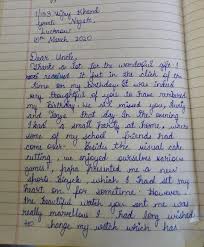 1/133 Vijay Khand
Gomti Nagar,
Lucknow
10th March 2020
Dear Uncle,
Thanks a lot for the wonderful gift. I
received it just in the click of the
time on my birthday. It was indeed
very thoughtful of you to have remembered
my Birthday. We all missed you, Aunty
and that day. In the evening
I had a small party at home, where
some of my school friends had
come over. Besides the usual cake
cutting, we enjoyed ourselves various
games! papa presented me a new
sports Bicycle which I had set my
heart on for sometime. However
the beautiful watch you sent me was
really marvellous I had long wished
to change my watch which has